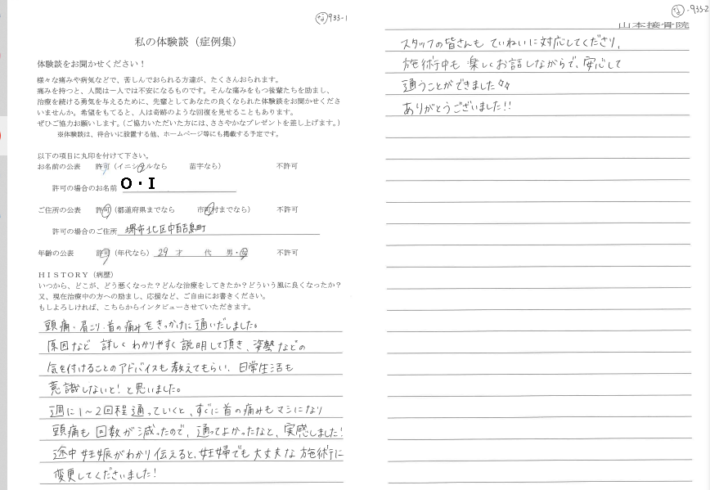 な933-1
私の体験談（症例集）
体験談をお聞かせください！
様々な痛みや病気などで、苦しんでおられる方達が、たくさんおられます。
痛みを持つと、人間は一人では不安になるものです。そんな痛みをもつ後輩たちを励まし、
治療を続ける勇気を与えるために、先輩としてあなたの良くなられた体験談をお聞かせくださ
いませんか。希望をもてると、人は奇跡のような回復を見せることもあります。
ぜひご協力お願いします。（ご協力いただいた方には、ささやかなプレゼントを差し上げます。）
※体験談は、待合いに設置する他、ホームページ等にも掲載する予定です。
以下の項目に丸印を付けて下さい。
お名前の公表 許可（イニシャルなら 苗字なら） 不許可
許可の場合のお名前 O・I
ご住所の公表 許可（都道府県までなら 市町村までなら） 不許可
許可の場合のご住所 堺市北区中百舌鳥町
年齢の公表 許可（年代なら） 29 才 代 男・女 不許可
HISTORY（病歴）
いつから、どこが、どう悪くなった？どんな治療をしてきたか？どういう風に良くなったか？
又、現在治療中の方への励まし、応援など、ご自由にお書きください。
もしよろしければ、こちらからインタビューさせていただきます。
頭痛・肩こり・首の痛みをきっかけに通いだしました。
原因など 詳しくわかりやすく説明して頂き、姿勢などの
気を付けることのアドバイスも教えてもらい、日常生活も
意識しないと！と思いました。
週に1〜2回程通っていくと、すぐに首の痛みもマシになり
頭痛も回数が減ったので、通ってよかったなと、実感しました！
途中妊娠がわかり伝えると、妊婦でも大丈夫な施術に
変更してくださいました！
な-933-2
山本接骨院
スタッフの皆さんもていねいに対応してくださり、
施術中も楽しくお話しながらで、安心して
通うことができました
ありがとうございました!!